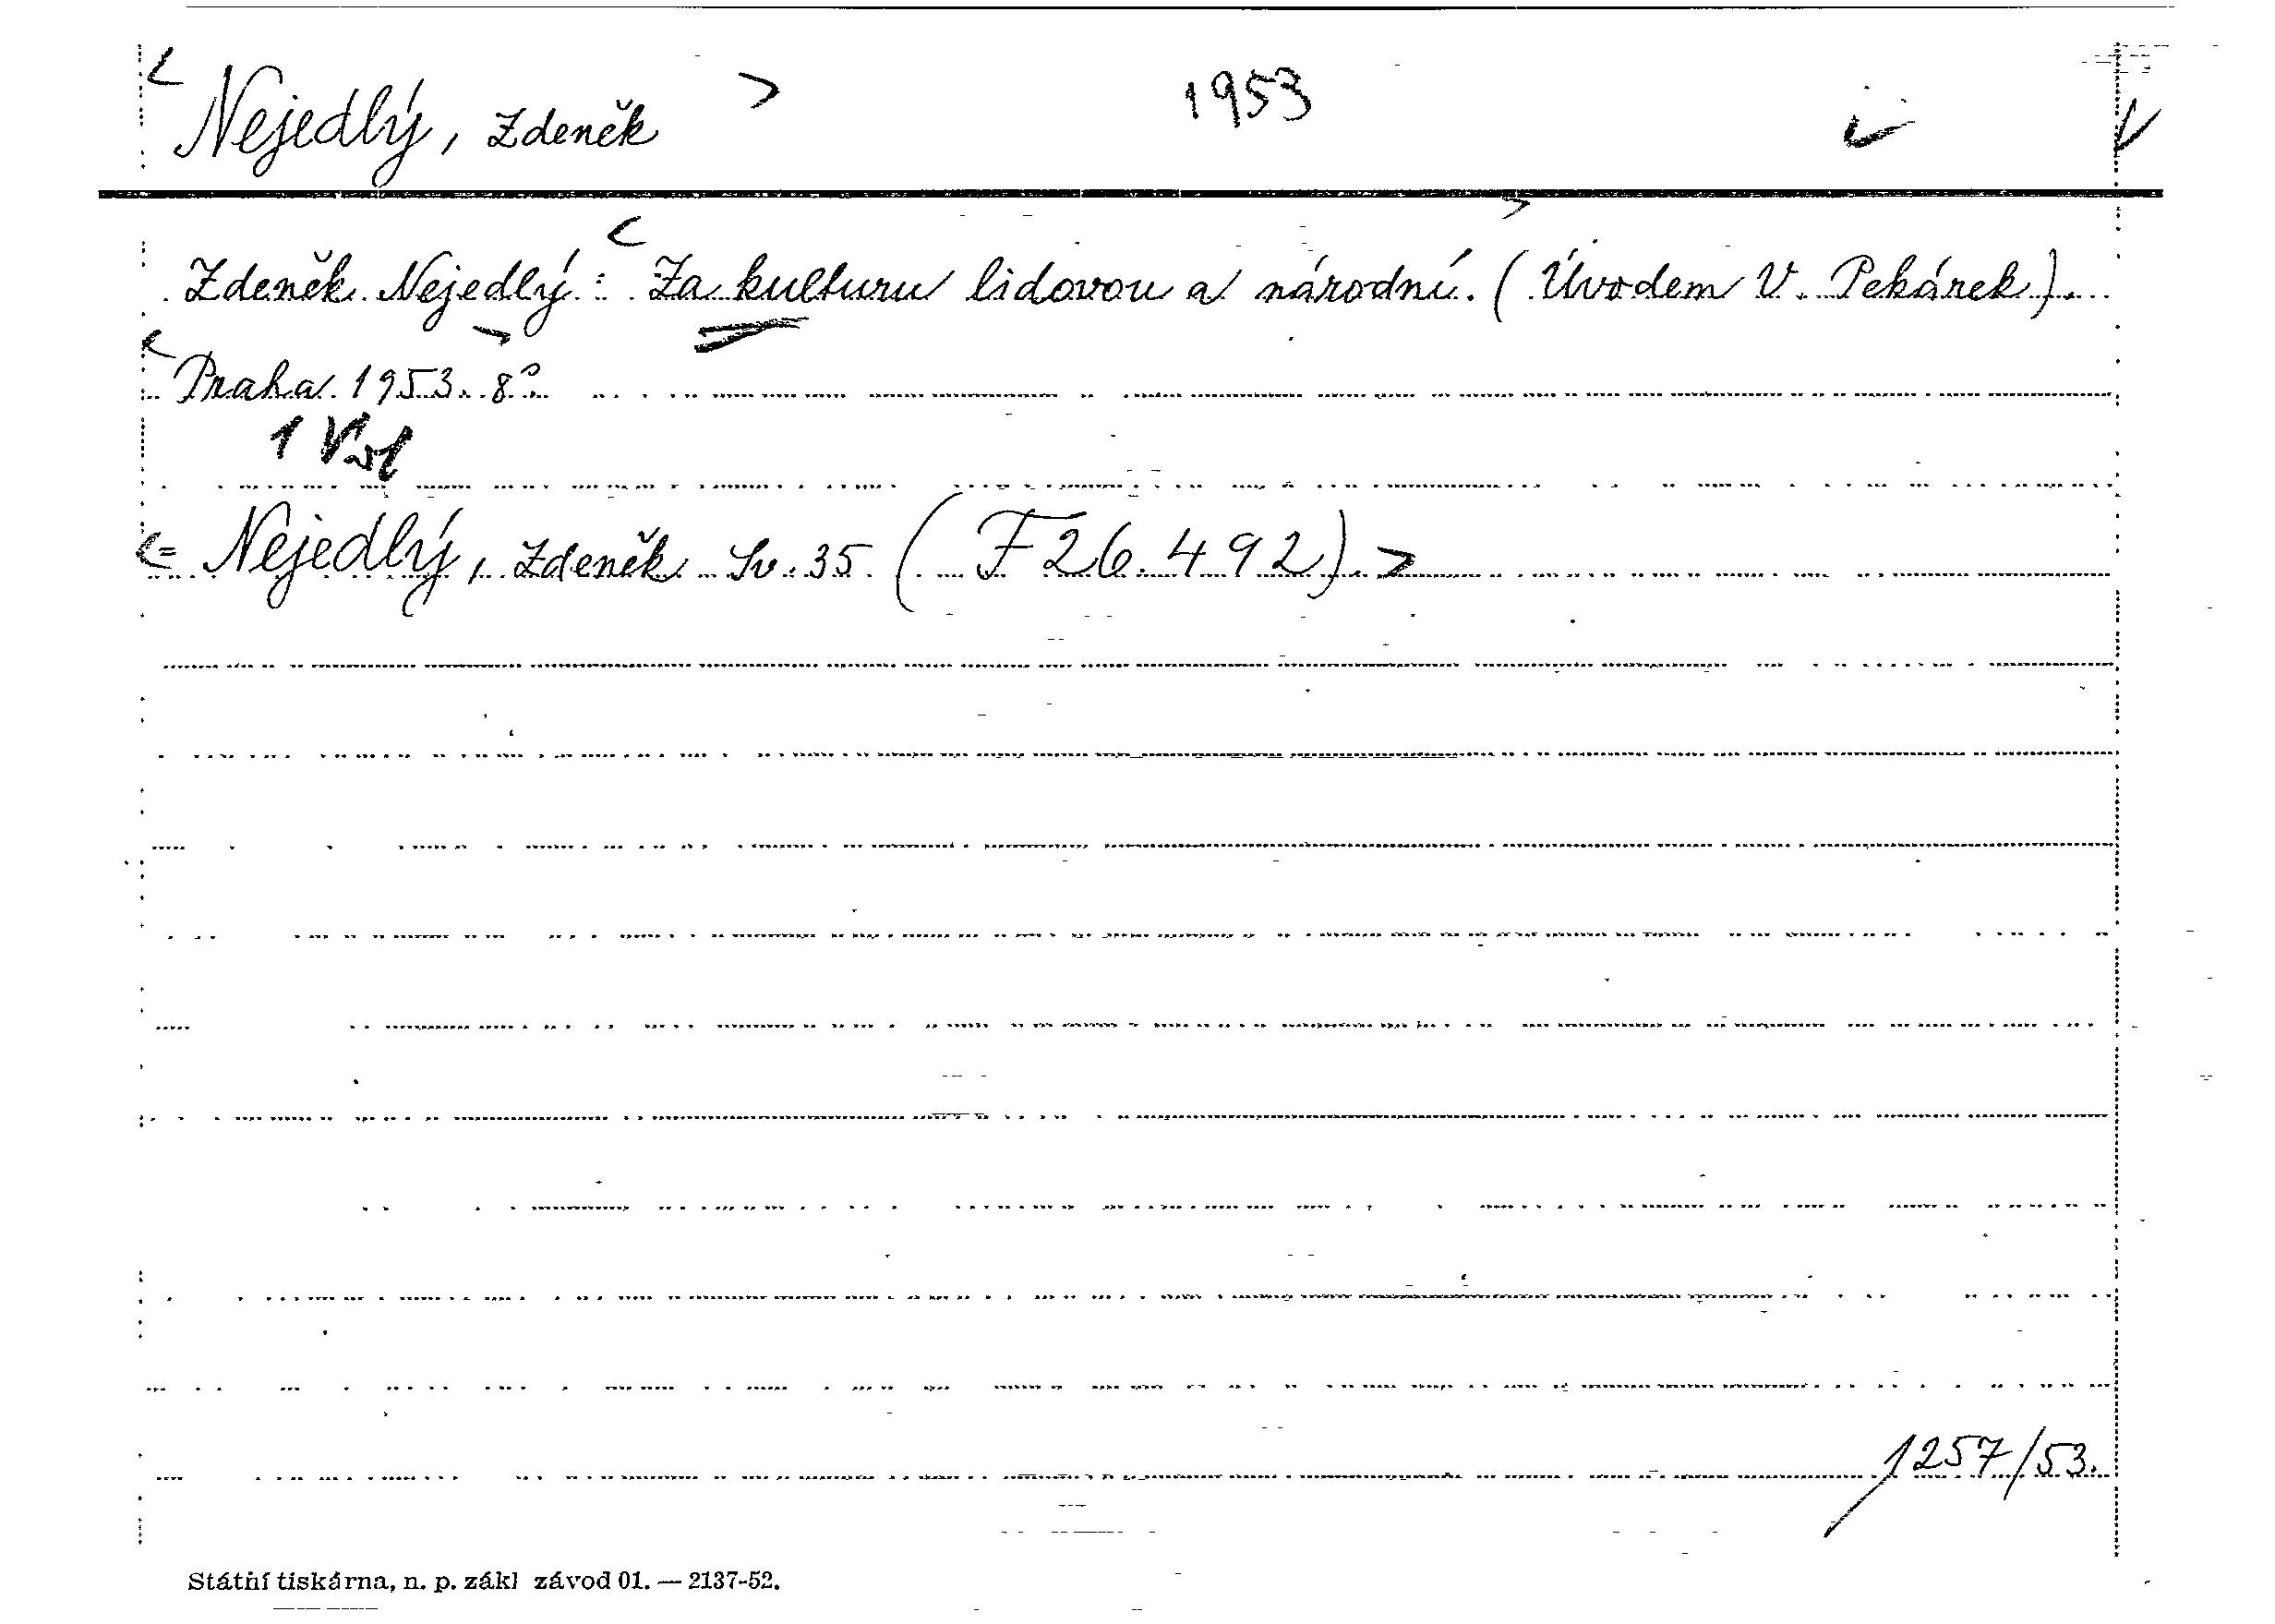 < Nejedlý, Zdeněk > 1953
Zdeněk Nejedlý: < Za kulturu lidovou a národní. > (Úvodem V. Pekárek).
< Praha 1953. > 8°.
1
<= Nejedlý, Zdeněk Sv. 35 (F 26.492). >
1257/53.
Státní tiskárna, n. p. zákl závod 01. — 2137-52.